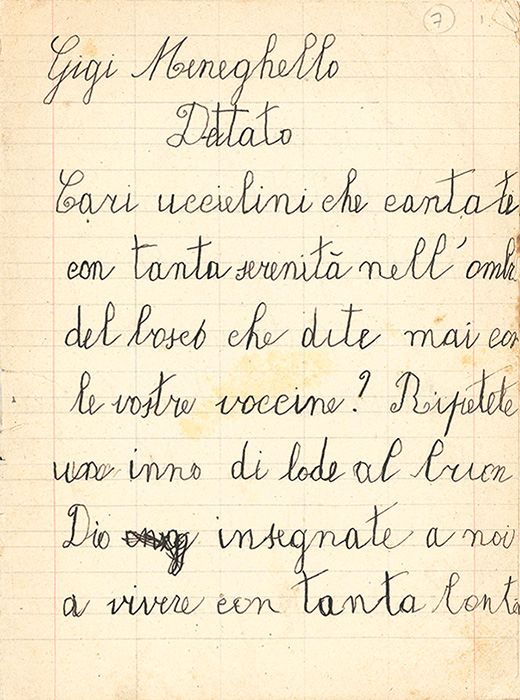 7
Gigi Meneghello
Dettato
Cari uccielini che cantate
con tanta serenità nell'ombr
del bosco che dite mai con
le vostre voccine? Ripetete
un inno di lode al buon
Dio insegnate a noi
a vivere con tanta bontà